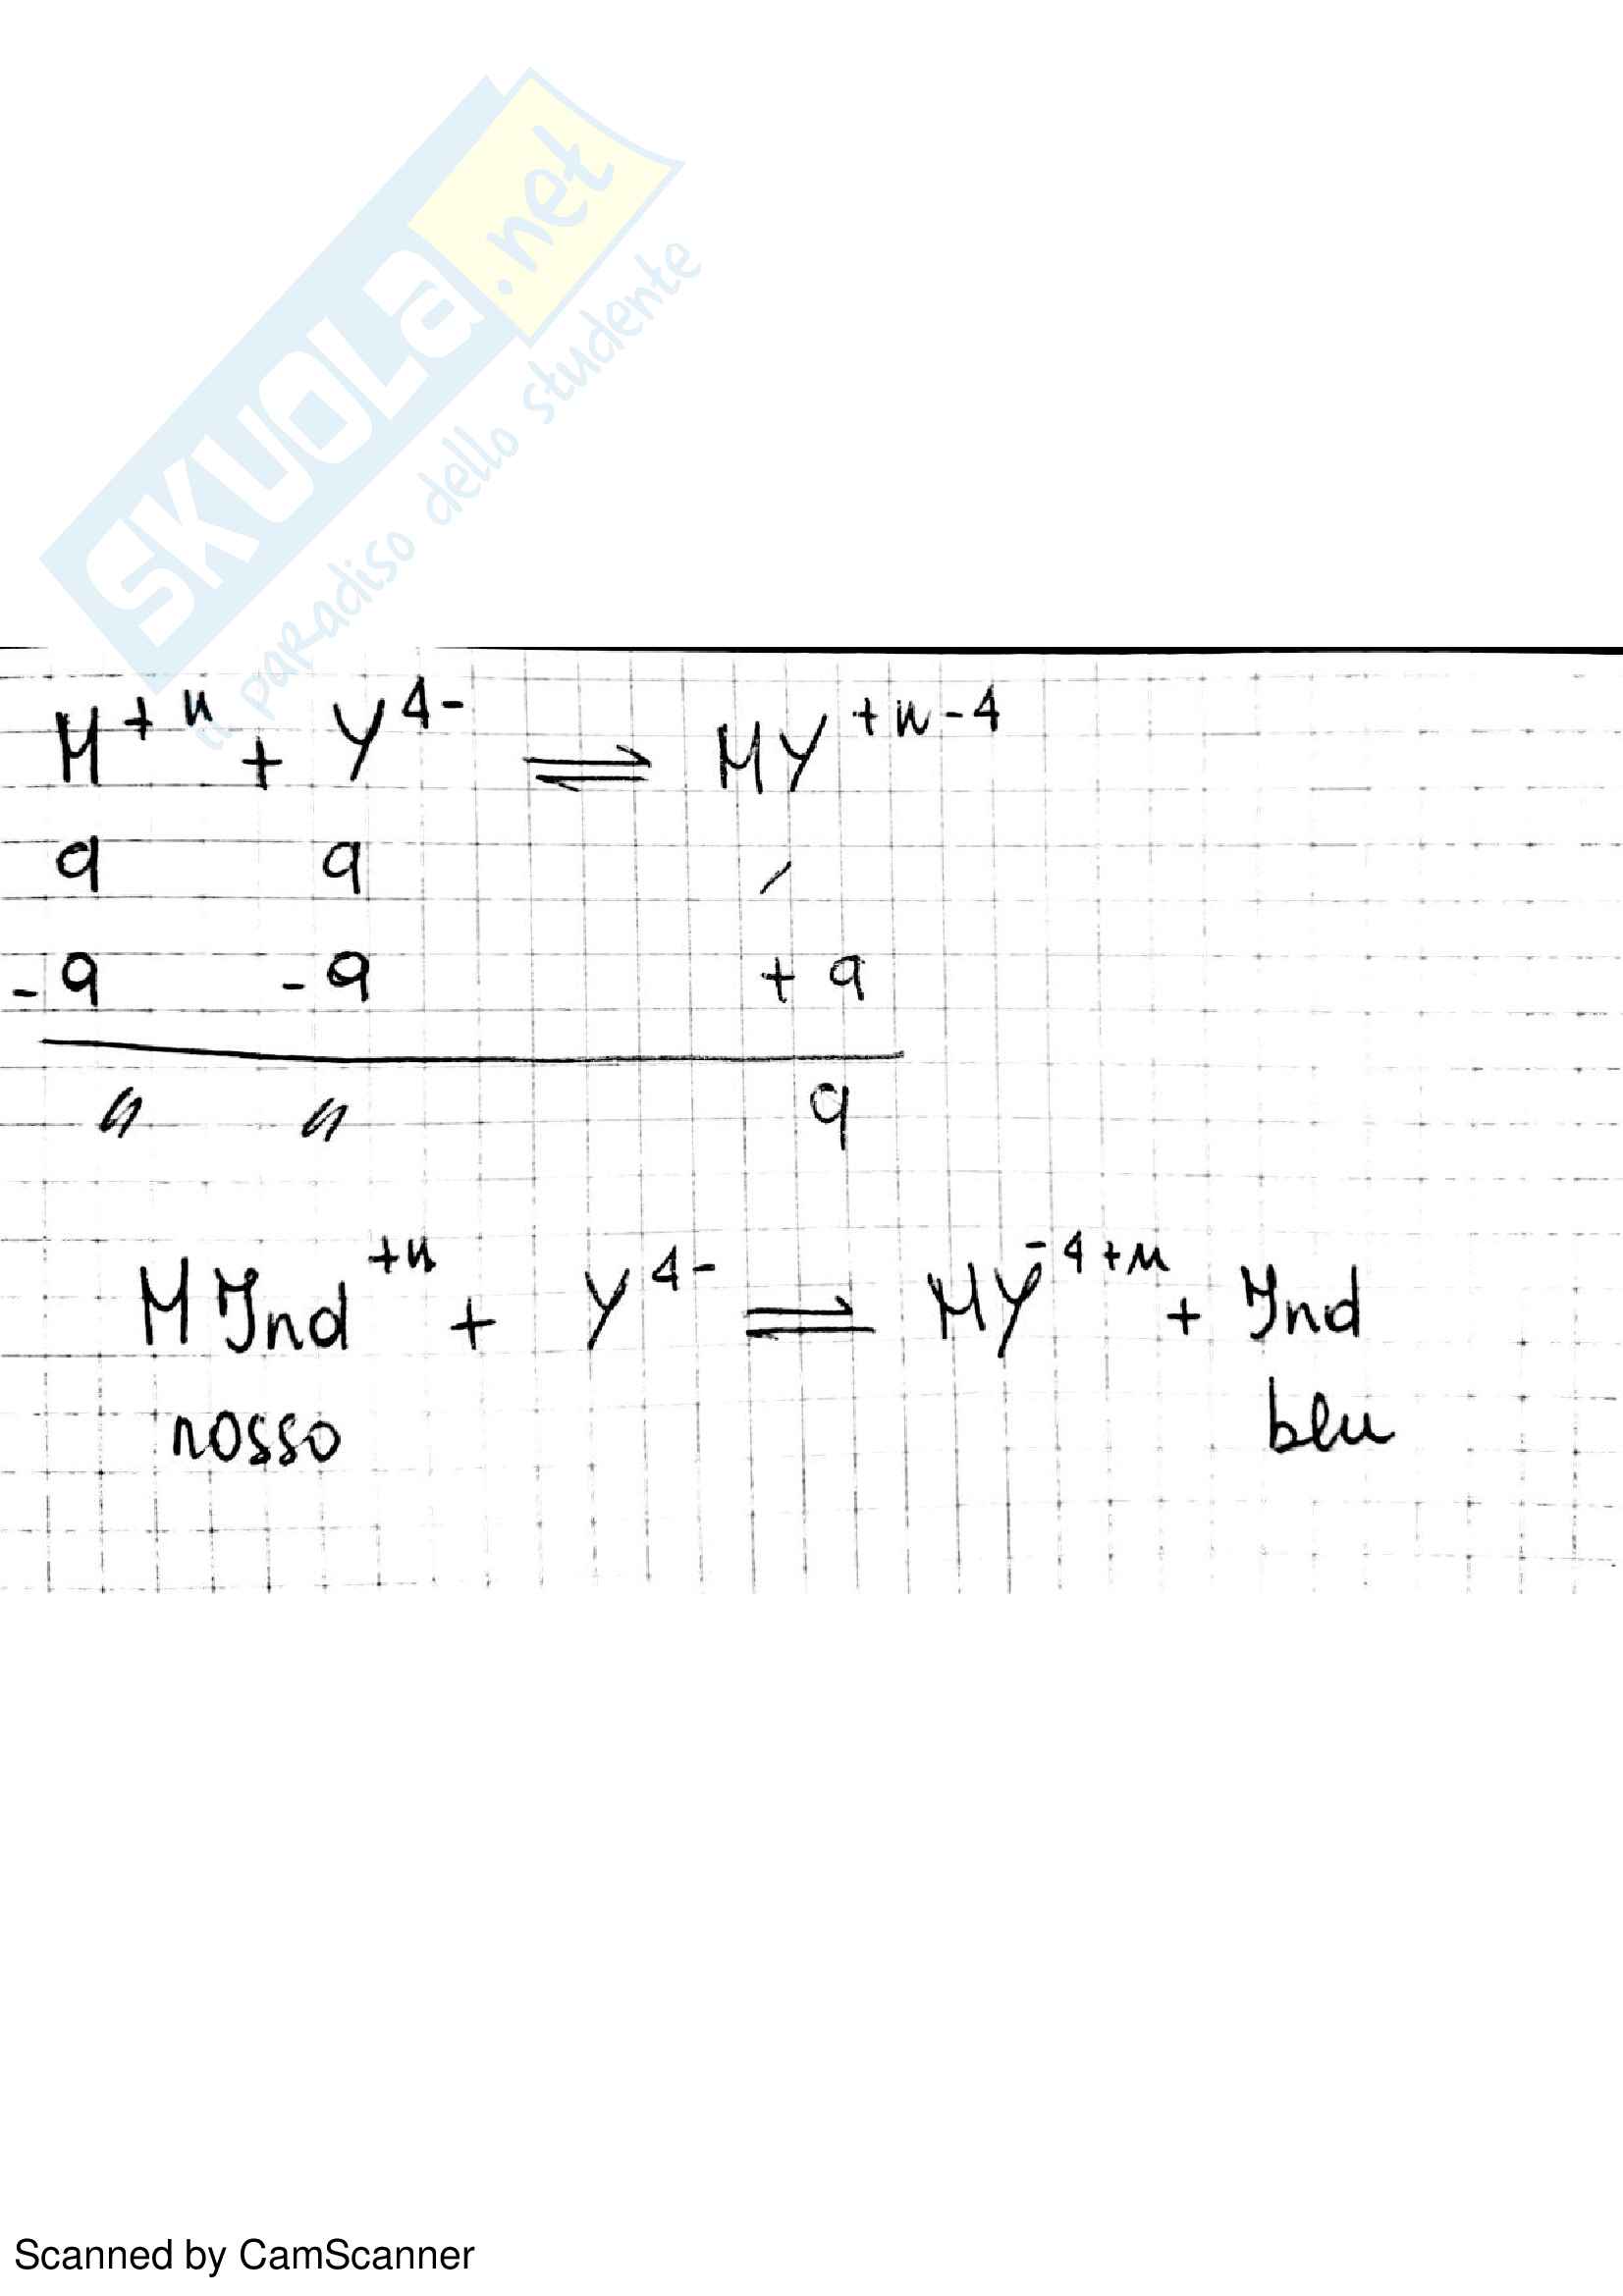 SKUOLA.net
il paradiso dello studente
M⁺ⁿ + Y⁴⁻ ⇌ MY⁺ⁿ⁻⁴
a a /
-a -a + a
// // a
MInd⁺ⁿ + Y⁴⁻ ⇌ MY⁻⁴⁺ⁿ + Ind
rosso blu
Scanned by CamScanner